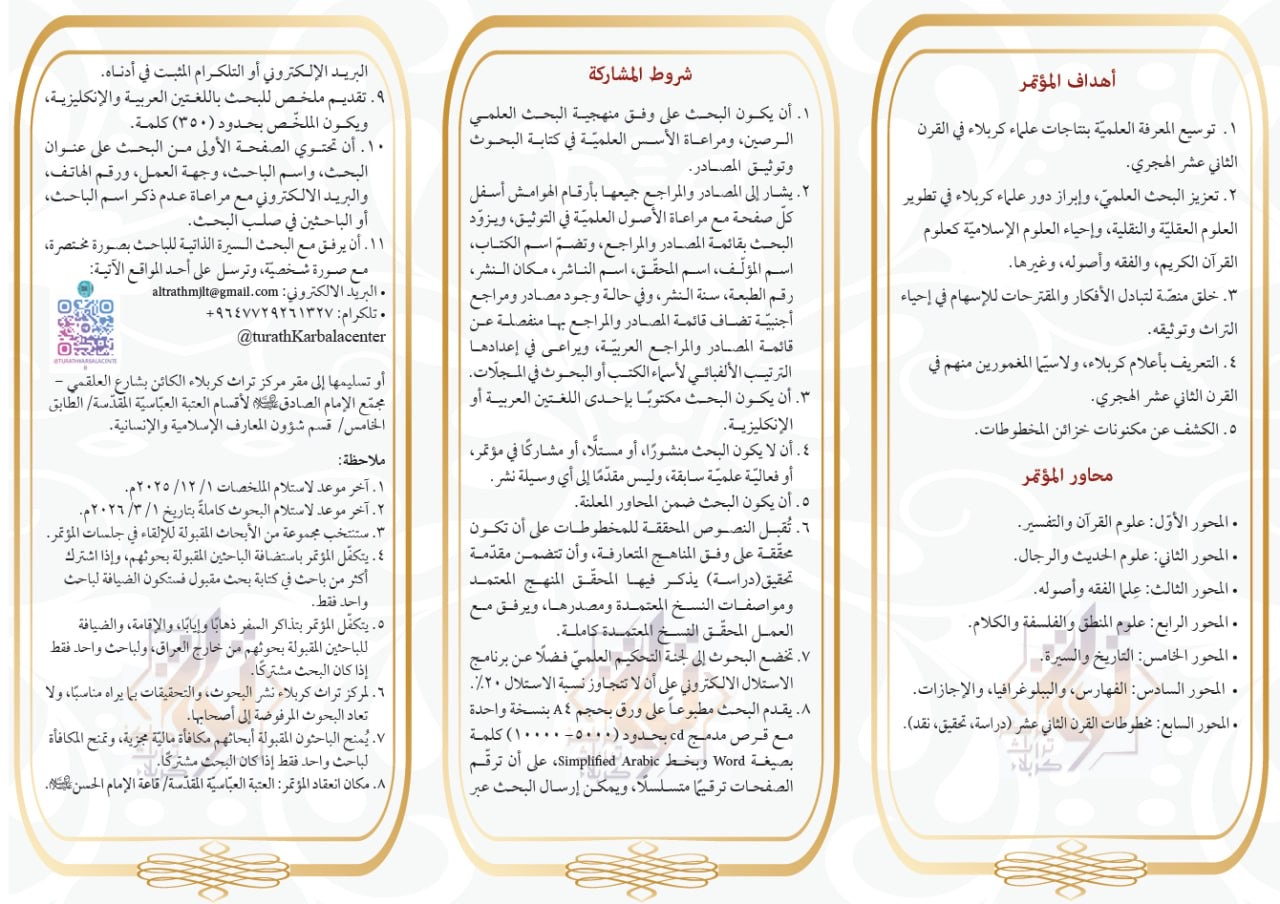 أهداف المؤتمر
١. توسيع المعرفة العلميّة بنتاجات علماء كربلاء في القرن
الثاني عشر الهجري.
٢. تعزيز البحث العلميّ، وإبراز دور علماء كربلاء في تطوير
العلوم العقليّة والنقلية، وإحياء العلوم الإسلاميّة كعلوم
القرآن الكريم، والفقه وأصوله، وغيرها.
٣. خلق منصّة لتبادل الأفكار والمقترحات للإسهام في إحياء
التراث وتوثيقه.
٤. التعريف بأعلام كربلاء، ولاسيّما المغمورين منهم في
القرن الثاني عشر الهجري.
٥. الكشف عن مكنونات خزائن المخطوطات.
محاور المؤتمر
• المحور الأوّل: علوم القرآن والتفسير.
• المحور الثاني: علوم الحديث والرجال.
• المحور الثالث: عِلما الفقه وأصوله.
• المحور الرابع: علوم المنطق والفلسفة والكلام.
• المحور الخامس: التاريخ والسيرة.
• المحور السادس: الفهارس، والببلوغرافيا، والإجازات.
• المحور السابع: مخطوطات القرن الثاني عشر (دراسة، تحقيق، نقد).
شروط المشاركة
١. أن يكون البحث على وفق منهجية البحث العلمي
الرصين، ومراعاة الأسس العلميّة في كتابة البحوث
وتوثيق المصادر.
٢. يشار إلى المصادر والمراجع جميعها بأرقام الهوامش أسفل
كلّ صفحة مع مراعاة الأصول العلميّة في التوثيق، ويزوّد
البحث بقائمة المصادر والمراجع، وتضمّ اسم الكتاب،
اسم المؤلّف، اسم المحقّق، اسم الناشر، مكان النشر،
رقم الطبعة، سنة النشر، وفي حالة وجود مصادر ومراجع
أجنبيّة تضاف قائمة المصادر والمراجع بها منفصلة عن
قائمة المصادر والمراجع العربيّة، ويراعى في إعدادها
الترتيب الألفبائي لأسماء الكتب أو البحوث في المجلّات.
٣. أن يكون البحث مكتوبًا بإحدى اللغتين العربية أو
الإنكليزية.
٤. أن لا يكون البحث منشورًا، أو مستلًّا، أو مشاركًا في مؤتمر،
أو فعاليّة علميّة سابقة، وليس مقدّمًا إلى أي وسيلة نشر.
٥. أن يكون البحث ضمن المحاور المعلنة.
٦. تُقبل النصوص المحققة للمخطوطات على أن تكون
محقّقة على وفق المناهج المتعارفة، وأن تتضمن مقدّمة
تحقيق(دراسة) يذكر فيها المحقّق المنهج المعتمد
ومواصفات النسخ المعتمدة ومصدرها، ويرفق مع
العمل المحقّق النسخ المعتمدة كاملة.
٧. تخضع البحوث إلى لجنة التحكيم العلميّ فضلًا عن برنامج
الاستلال الالكتروني على أن لا تتجاوز نسبة الاستلال ٢٠٪.
٨. يقدم البحث مطبوعاً على ورق بحجم A٤ بنسخة واحدة
مع قرص مدمج cd بحدود (٥٠٠٠- ١٠٠٠٠) كلمة
بصيغة Word وبخط Simplified Arabic، على أن ترقّم
الصفحات ترقيمًا متسلسلًا، ويمكن إرسال البحث عبر
البريد الإلكتروني أو التلكرام المثبت في أدناه.
٩. تقديم ملخص للبحث باللغتين العربية والإنكليزية،
ويكون الملخّص بحدود (٣٥٠) كلمة.
١٠. أن تحتوي الصفحة الأولى من البحث على عنوان
البحث، واسم الباحث، وجهة العمل، ورقم الهاتف،
والبريد الالكتروني مع مراعاة عدم ذكر اسم الباحث،
أو الباحثين في صلب البحث.
١١. أن يرفق مع البحث السيرة الذاتية للباحث بصورة مختصرة،
مع صورة شخصيّة، وترسل على أحد المواقع الآتية:
• البريد الالكتروني: altrathmjlt@gmail.com
• تلكرام: ٩٦٤٧٧٢٩٢٦١٣٢٧+
@turathKarbalacenter
@TURATHKARBALACENTE
R
أو تسليمها إلى مقر مركز تراث كربلاء الكائن بشارع العلقمي –
مجمّع الإمام الصادق لأقسام العتبة العبّاسيّة المقدّسة/ الطابق
الخامس/ قسم شؤون المعارف الإسلامية والإنسانية.
ملاحظة:
١. آخر موعد لاستلام الملخصات ١/ ١٢/ ٢٠٢٥م.
٢. آخر موعد لاستلام البحوث كاملةً بتاريخ ١/ ٣/ ٢٠٢٦م.
٣. ستنتخب مجموعة من الأبحاث المقبولة للإلقاء في جلسات المؤتمر.
٤. يتكفّل المؤتمر باستضافة الباحثين المقبولة بحوثهم، وإذا اشترك
أكثر من باحث في كتابة بحث مقبول فستكون الضيافة لباحث
واحد فقط.
٥. يتكفّل المؤتمر بتذاكر السفر ذهابًا وإيابًا، والإقامة، والضيافة
للباحثين المقبولة بحوثهم من خارج العراق، ولباحث واحد فقط
إذا كان البحث مشتركًا.
٦. لمركز تراث كربلاء نشر البحوث، والتحقيقات بما يراه مناسبًا، ولا
تعاد البحوث المرفوضة إلى أصحابها.
٧. يُمنح الباحثون المقبولة أبحاثهم مكافأة ماليّة مجزية، وتمنح المكافأة
لباحث واحد فقط إذا كان البحث مشتركًا.
٨. مكان انعقاد المؤتمر: العتبة العبّاسيّة المقدّسة/ قاعة الإمام الحسن.